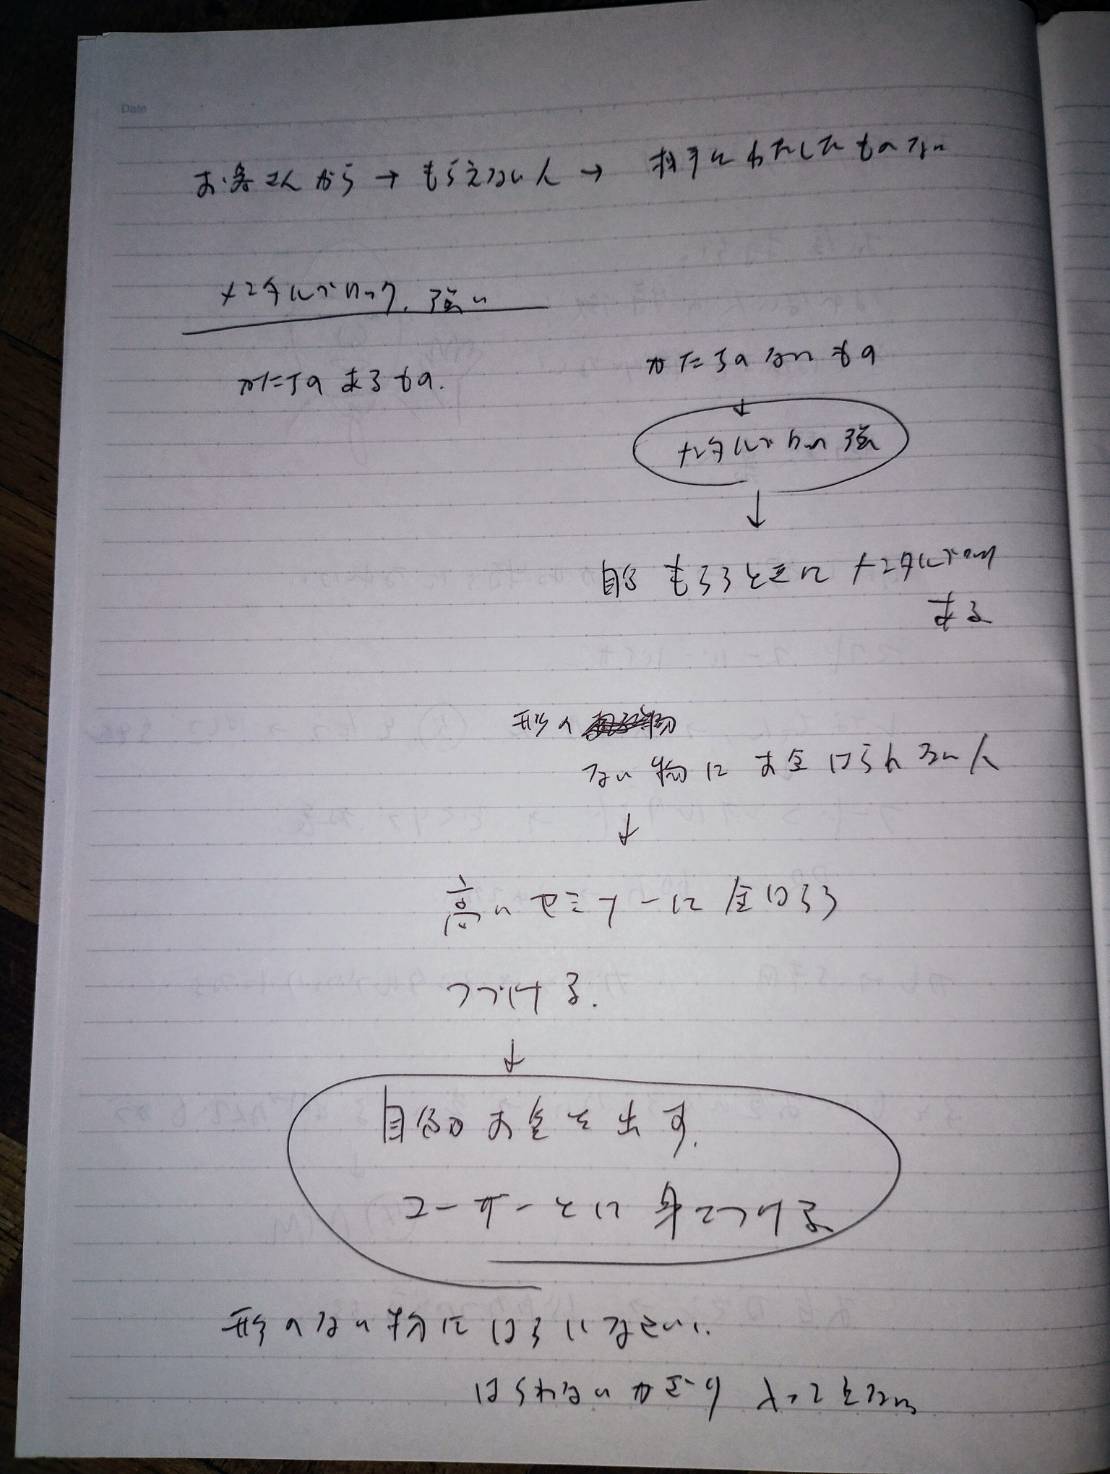 Date
お客さんから → もらえない人 → 相手にわたしたものない
メンタルブロック、強い
かたちのあるもの.
かたちのないもの
↓
メンタルブロック 強
↓
自分 もらうときに メンタルブロック
ある
形の
ない物に お金はらえない人
↓
高いセミナーに 金はらう
つづける.
↓
自分の お金を 出す.
ユーザー 身につける
形のない物に はらいなさい.
はらわないかぎり 入ってこない